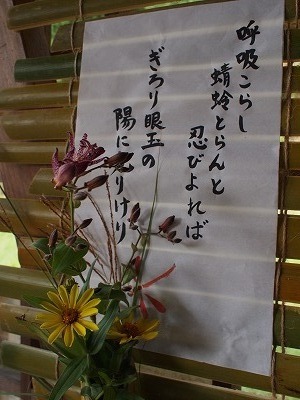 呼吸こらし
蜻蛉とらんと
忍びよれば
ぎろり眼玉の
陽に りけり